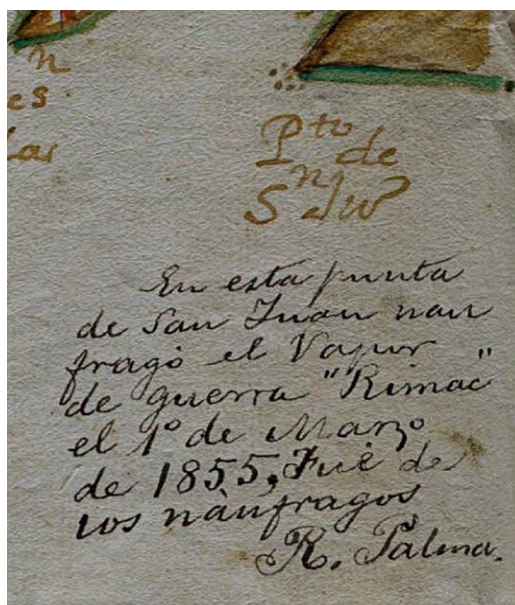 n
es
las
Pto de
Sn Juo
En esta punta
de San Juan nau
fragó el Vapor
de guerra "Rimac"
el 1º de Marzo
de 1855. Fué de
los náufragos
R. Palma.